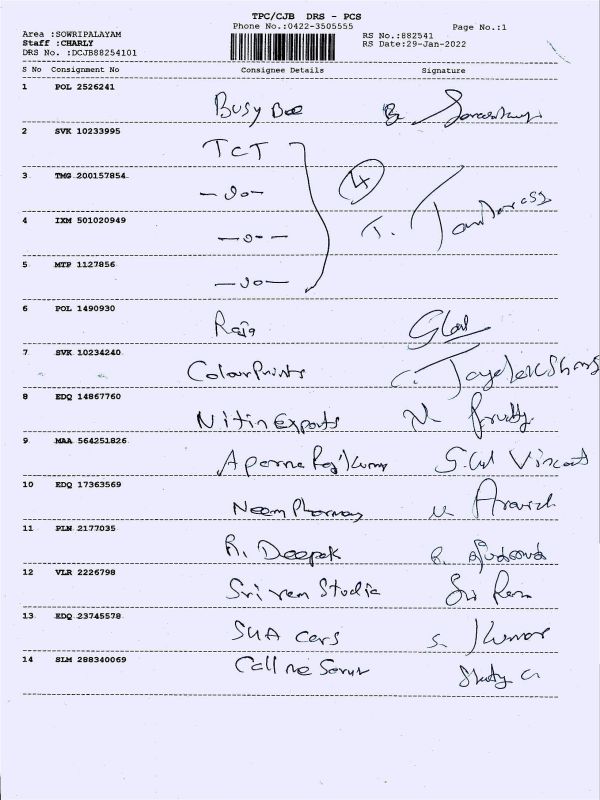 TPC/CJB DRS - PCS
Phone No.:0422-3505555
Page No.:1
Area :SOWRIPALAYAM
Staff :CHARLY
DRS No. :DCJB88254101
RS No.:882541
RS Date:29-Jan-2022
S No Consignment No Consignee Details Signature
1 POL 2526241
Busy Bee
2 SVK 10233995
TCT
3 TMG 200157854
4
4 IXM 501020949
5 MTP 1127856
6 POL 1490930
Raja
7 SVK 10234240
Colour Prints
8 EDQ 14867760
Nitin Exports
9 MAA 564251826
Aparna Raj Kumar S. Vincent
10 EDQ 17363569
Neem Pharmacy
11 PLN 2177035
R. Deepak
12 VLR 2226798
Sri ram Studio Sri Ram
13 EDQ 23745578
SUA Cars S. Kumar
14 SLM 288340069
Call me